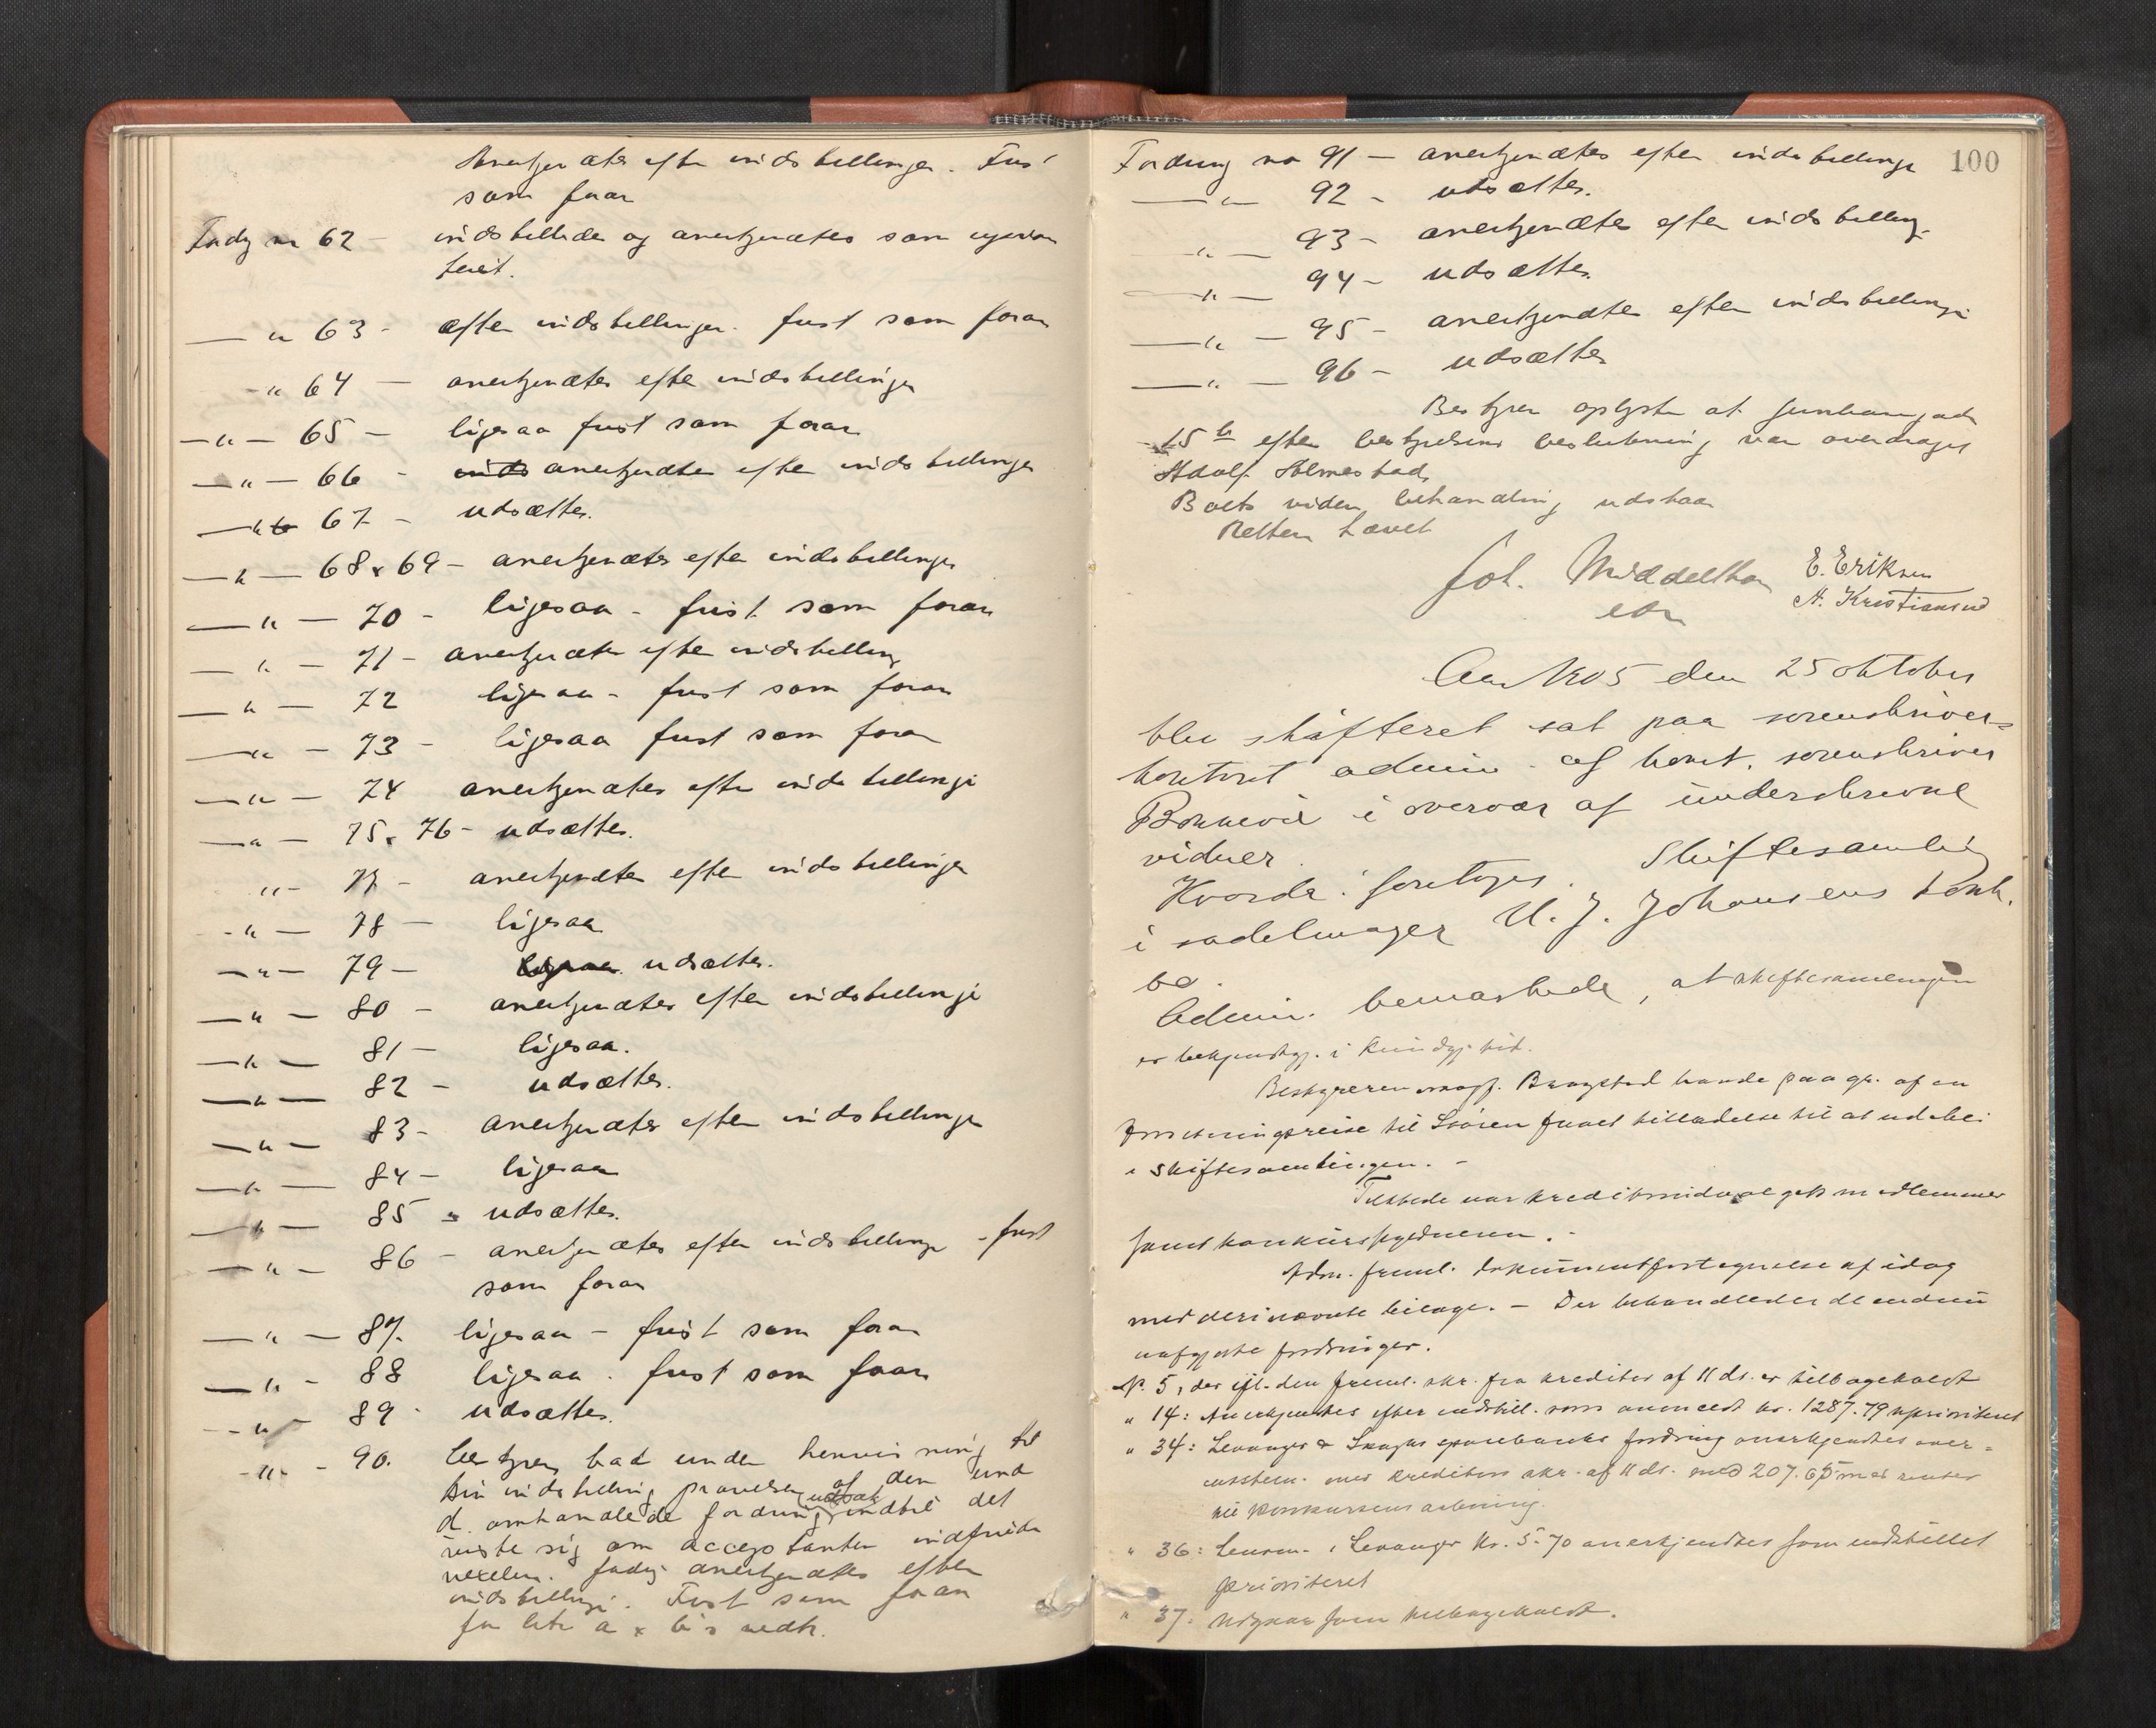 Anerkjendtes efter indstillingen. Frist
som foran
Fordg no 62 - indstilledes og anerkjendtes som uprior
teret.
— " 63 - efter indstillingen. frist som foran
- " 64 — anerkjendtes efter indstillingen
— " — 65 — ligesaa frist som foran
— " — 66 - anerkjendtes efter indstillingen
— " 67 - udsættes.
— " — 68 & 69 - anerkjendtes efter indstillingen
— " — 70 - ligesaa - frist som foran
— " — 71 - anerkjendtes efter indstilling
— " — 72 ligesaa - frist som foran
— " — 73 - ligesaa frist som foran
— " — 74 anerkjendtes efter indstillingen
— " — 75 & 76 - udsættes.
" - 77 - anerkjendtes efter indstillingen
- " — 78 — ligesaa
— " — 79 — udsættes.
— " — 80 - anerkjendtes efter indstillingen
— " — 81 — ligesaa.
— " — 82 - udsættes.
— " — 83 - anerkjendtes efter indstillingen
— " — 84 — ligesaa
— " — 85 - udsættes.
— " — 86 - anerkjendtes efter indstillingen - frist
som foran
— " — 87 ligesaa - frist som foran
— " - 88 ligesaa. frist som foran
- " - 89 - udsættes.
- " - 90. bestyren bad under henvisning til
sin indstilling prøvelsen af den und
d. omhandlede fordring udsat indtil det
viste sig om acceptanten indfriede
vexelen. fordg anerkjendtes efter
indstillingen. Frist som foran
for litr a & b's vedk.
100
Fordring no 91 — anerkjendtes efter indstillingen
— " — 92 - udsættes.
— " — 93 - anerkjendtes efter indstilling
— " — 94 - udsættes.
— " — 95 - anerkjendtes efter indstillingen
— " — 96 - udsættes
Bestyren oplyste at
15 efter bestyrelsens beslutning var overdraget
Adolf Holmestad.
Boets videre behandling udstaar
Retten hævet
Joh. Middelthon E. Eriksen
A. Kristiansen
Aar 1905 den 25 oktober
blev skifteret sat paa sorenskriver-
kontoret admin. af konst. sorenskriver
Bonnevie i overvær af underskrevne
vidner.
Hvorda: foretoges. Skiftesamling
i sadelmager U. J. Johansens konk.
bo.
Admin. bemærkede, at skiftesamlingen
er bekjendtgj. i Kundgj. tid.
Bestyreren sagf. Brogstad havde paa gr. af en
forretningsreise til Snåsen faaet tilladelse til at udebli
i skiftesamlingen. -
Tilstede var kreditorudvalgets medlemmer
samt konkursskyldneren. -
Adm. freml. dokumentfortegnelse af idag
med deri nævnte bilage. - Der behandledes de endnu
uafgjorte fordringer.
No. 5, der ifl. den freml. skr. fra kreditor af 11 ds. er tilbagekaldt
" 14: Anerkjendtes efter indstill. som avanceret kr. 1287.79 uprioriteret
" 34: Levanger & Skogns sparebanks fordring anerkjendtes over-
ensstem. med kreditors skr. af 11 ds. med 207.65 med renter
til konkursens aabning.
" 36: Lensm. i Levanger kr. 5.70 anerkjendtes som indstillet
prioriteret
" 37: Udgaar som tilbagekaldt.